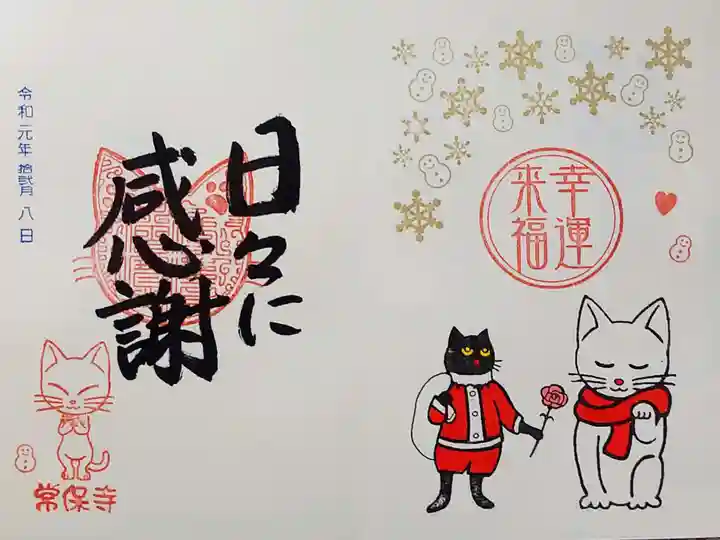 幸運
来福
日々に
感謝
令和元年拾弐月八日
常保寺